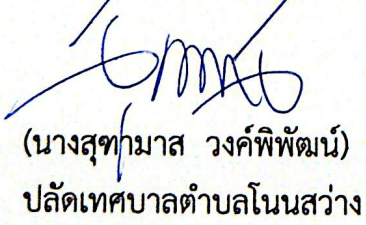 (นางสุฑามาส วงค์พิพัฒน์)
ปลัดเทศบาลตำบลโนนสว่าง